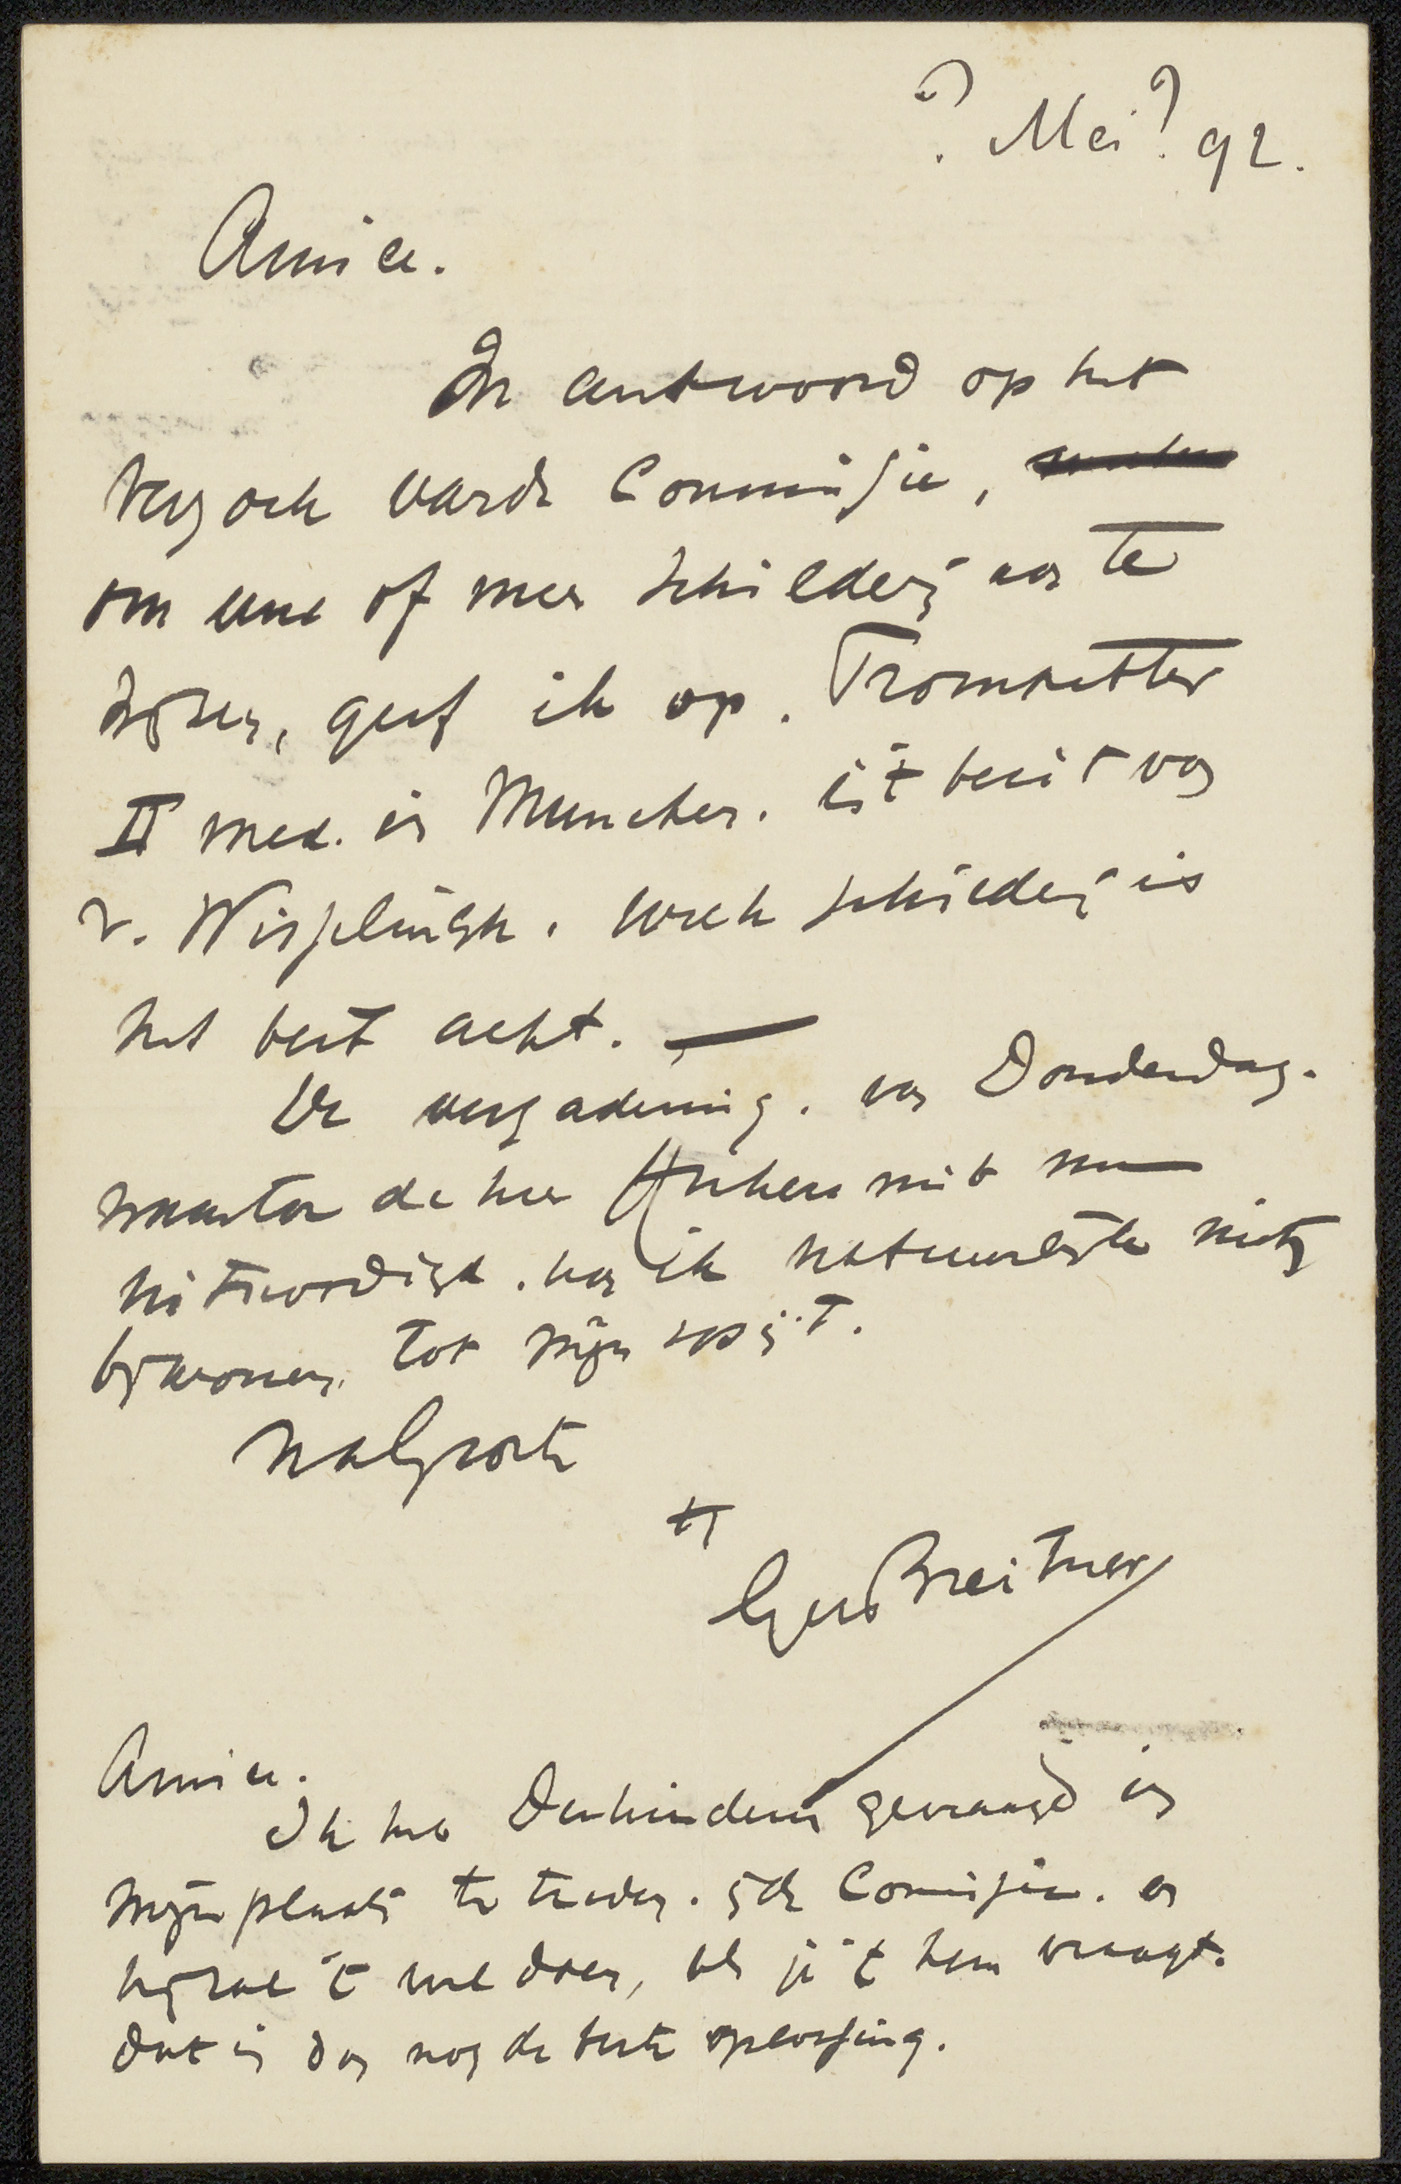 ? Mei ? 92.
Amice.
In antwoord op het
verzoek van de Commissie,
om een of meer schilderij aan te
wijzen, geef ik op. Trompetter
II med. in Munchen. is 't bezit van
v. Wisselingh. welk schilderij is
het best acht. —
De vergadering. van Donderdag.
waartoe de heer mij
uitnoodigde. kan ik natuurlijk niet
bijwonen, tot mijn spijt.
Na groete
tt
Geo Breitner
Amice.
Ik heb Derkinderen gevraagd in
mijn plaats te treden. in de Comissie. en
hij zal 't wel doen, als je 't hem vraagt.
dat is dan nog de beste oplossing.